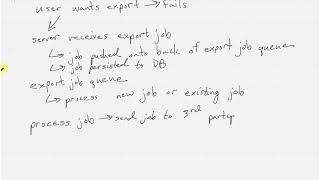 user wants export → fails
server receives export job
↳ job pushed onto back of export job queue
↳ job persisted to DB
export job queue
↳ process new job or existing job
process job → send job to 3rd party